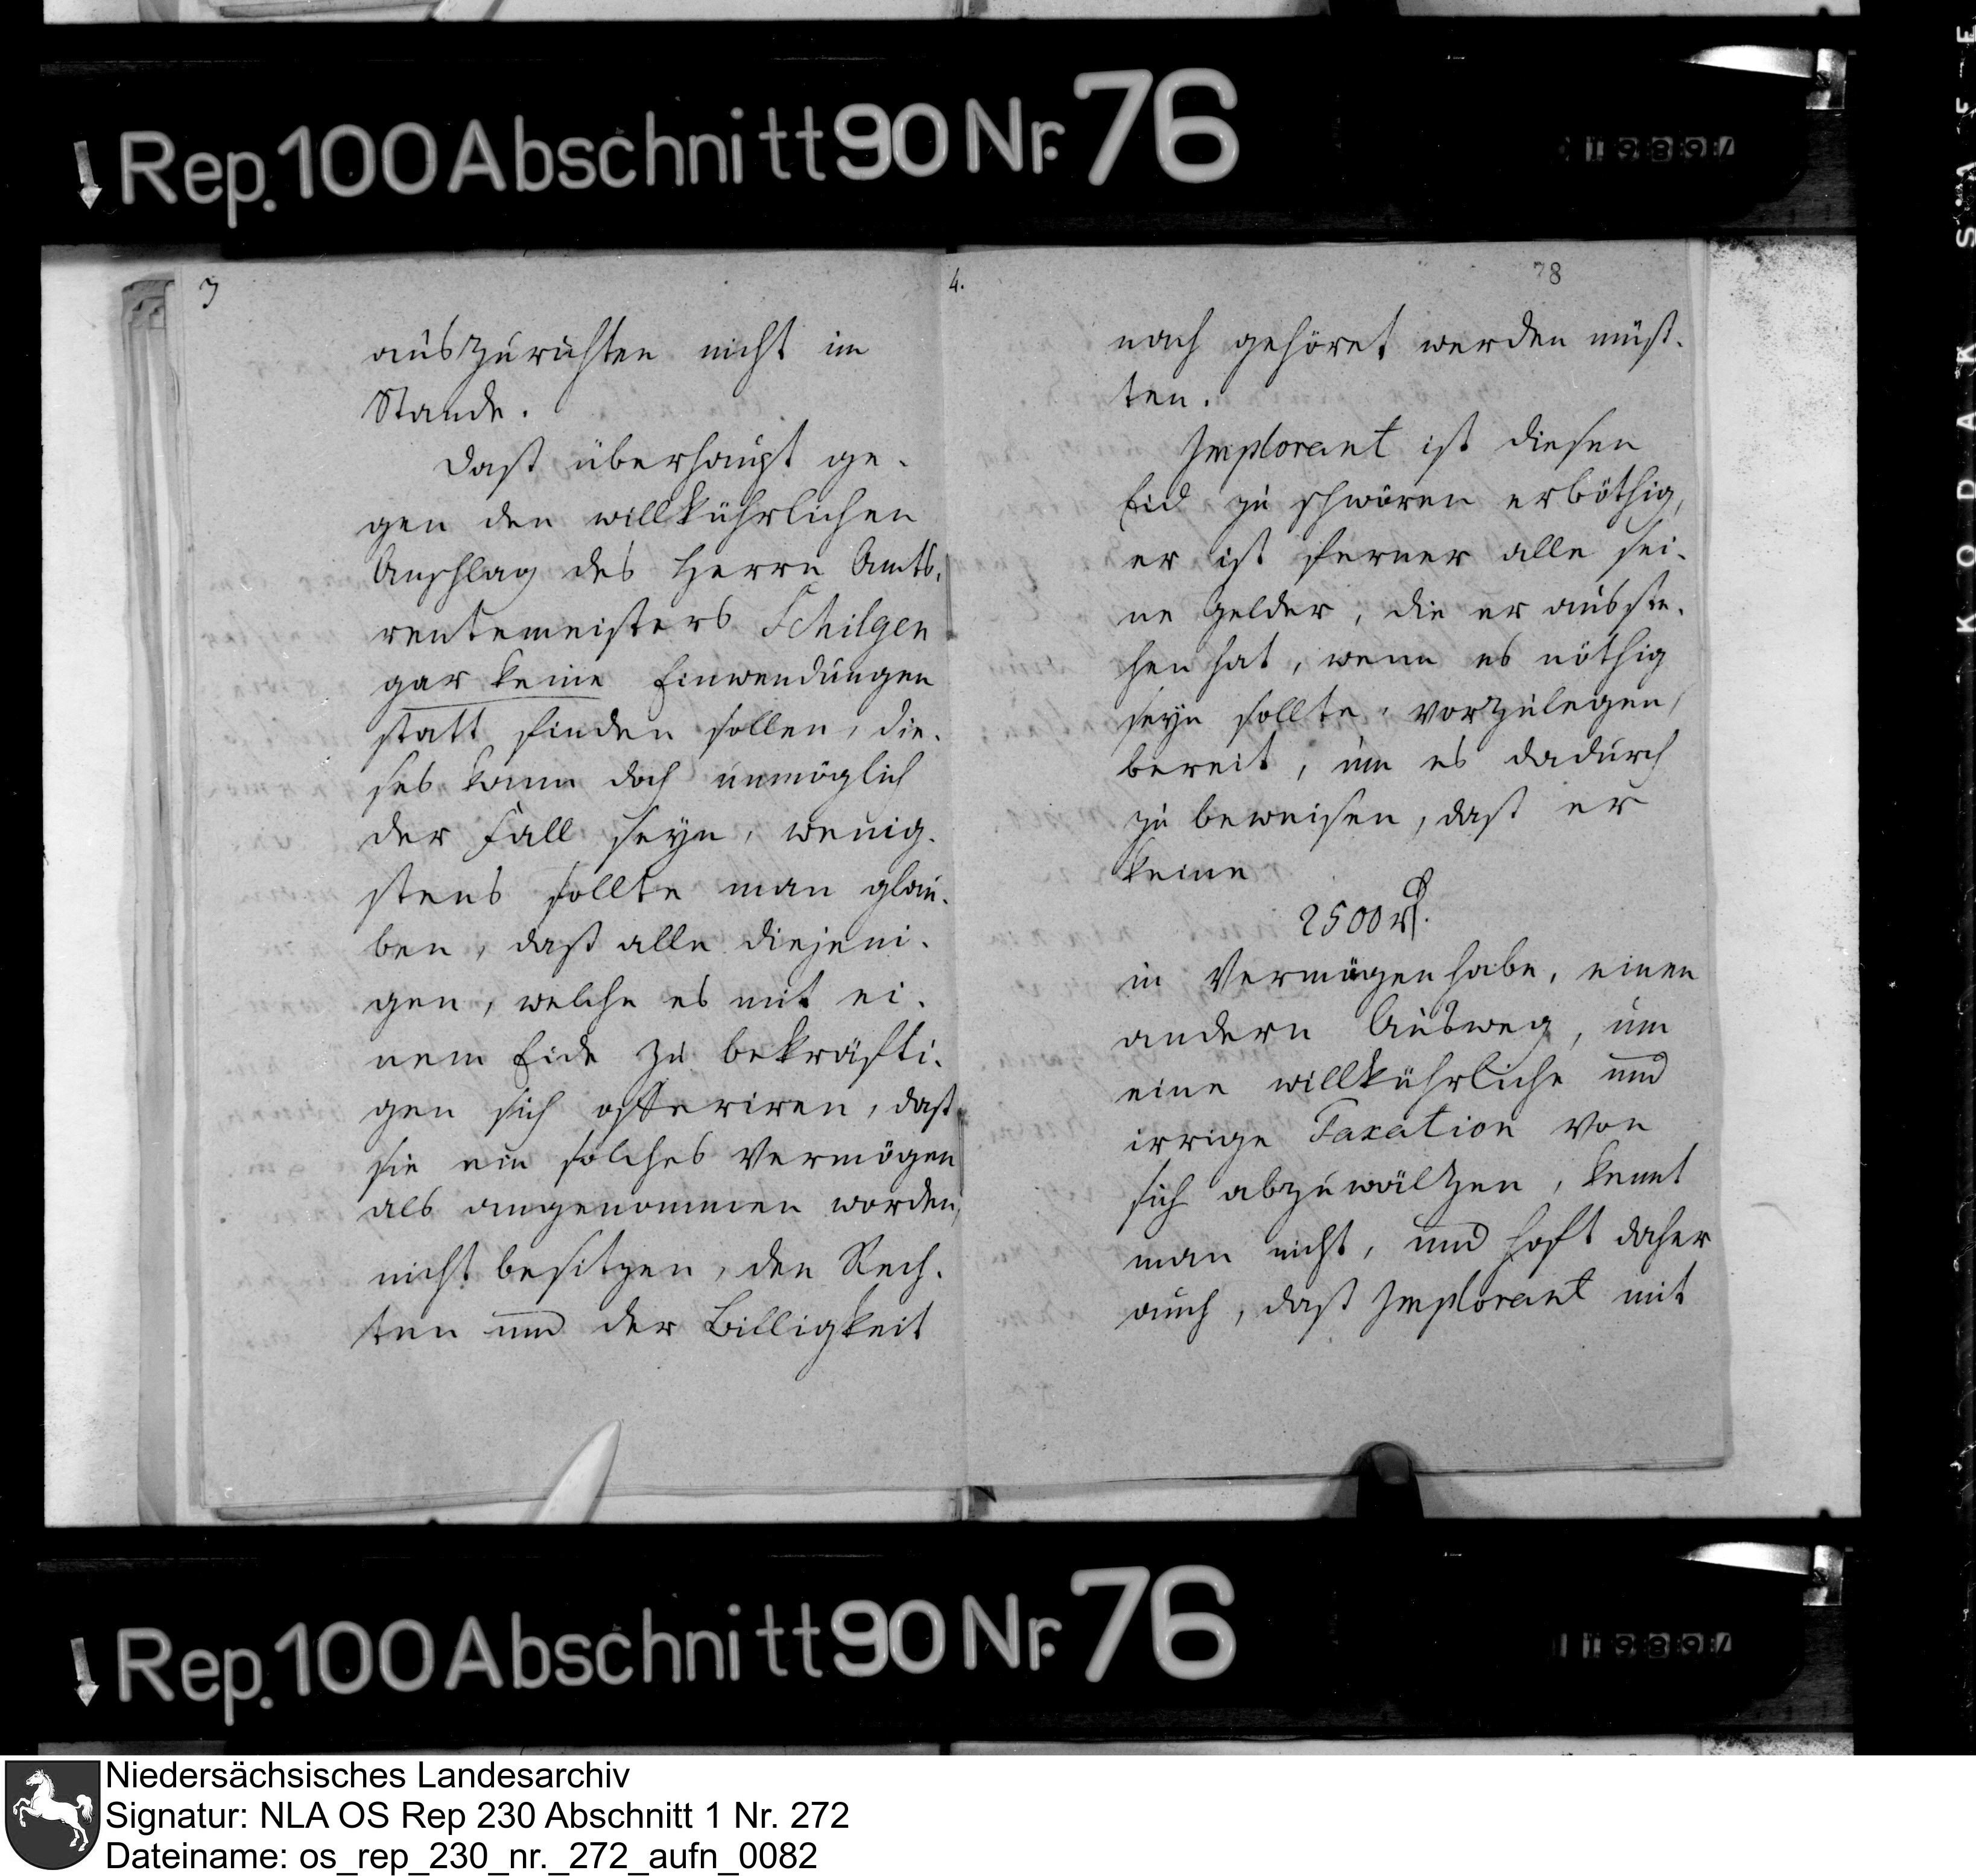 Rep. 100 Abschnitt 90 Nr. 76
3
auszurichten nicht im
Stande.
Daß überhaupt ge-
gen den willkührlichen
Anschlag des Herrn Amts-
rentemeisters Schilgen
gar keine Einwendungen
statt finden sollen, die-
ses kann doch unmöglich
der Fall seyn, wenig-
stens sollte man glau-
ben, daß alle diejeni-
gen, welche es mit ei-
nem Eide zu bekräfti-
gen sich offeriren, daß
sie ein solches Vermögen
als angenommen worden,
nicht besitzen, den Rech-
ten und der Billigkeit
4.
78
nach gehöret werden müß-
ten.
Implorant ist diesen
Eid zu schwören erböthig,
er ist ferner alle sei-
ne Gelder, die er ausste-
hen hat, wenn es nöthig
seyn sollte, vorzulegen,
bereit, um es dadurch
zu beweisen, daß er
keine
2500 rt.
in Vermögen habe, einen
andern Ausweg, um
eine willkührliche und
irrige Taxation von
sich abzuwälzen, kennt
man nicht, und hoft daher
auch, daß Implorant mit
Rep. 100 Abschnitt 90 Nr. 76
KODAK SAFE
Niedersächsisches Landesarchiv
Signatur: NLA OS Rep 230 Abschnitt 1 Nr. 272
Dateiname: os_rep_230_nr._272_aufn_0082